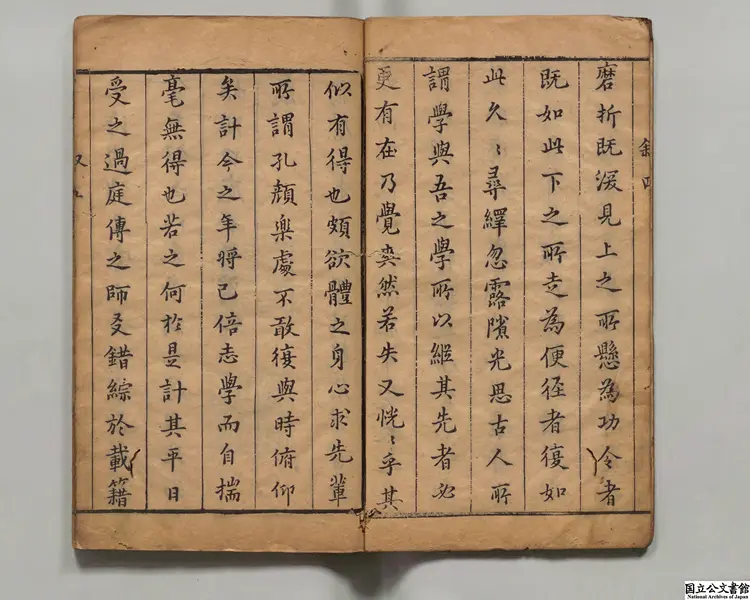 磨折既深見上之所懸為功令者
既如此下之所走為便徑者復如
此久〻尋繹忽露隙光思古人所
謂學與吾之學所以縱其先者必
更有在乃覺爽然若失又恍〻乎其
似有得也頗欲體之身心求先輩
所謂孔顏樂處不敢復與時俯仰
矣計今之年將已倍志學而自揣
毫無得也若之何於是計其平日
受之過庭傳之師友錯綜於載籍
国立公文書館
National Archives of Japan